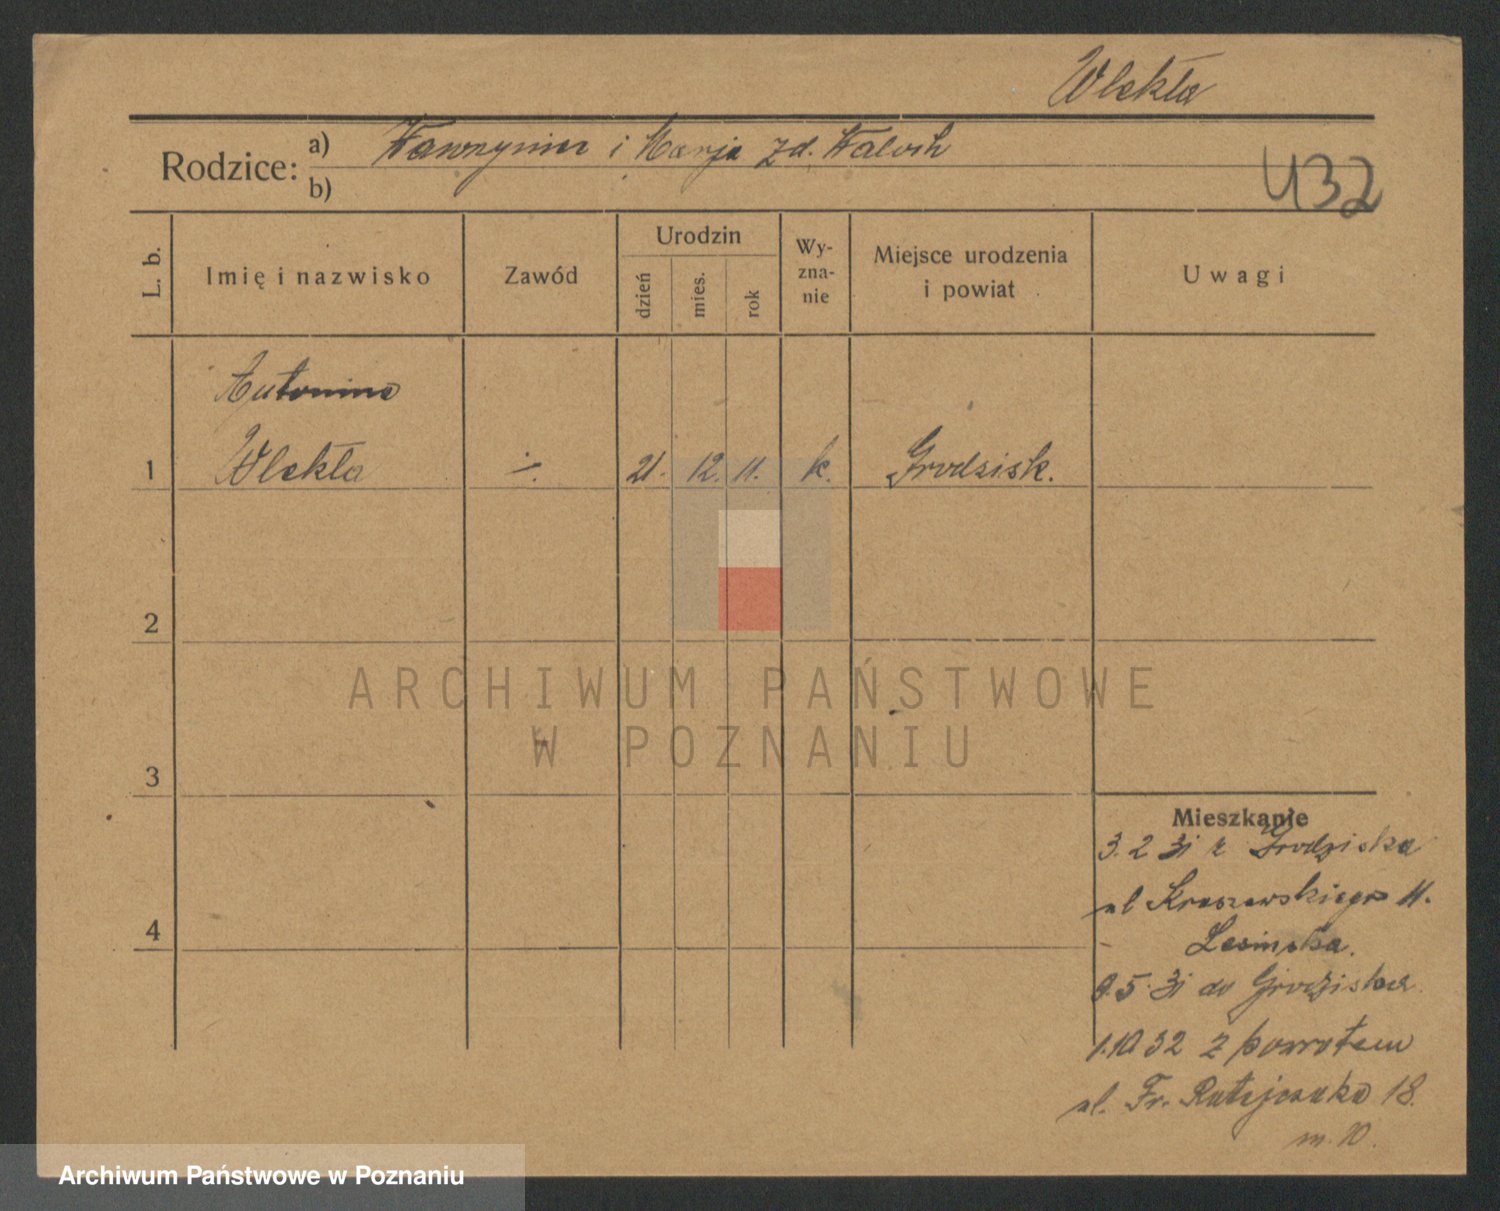 Wlekła
Rodzice: a) Wawrzyniec i Marja zd. Waloch
b)
432
L. b.
Imię i nazwisko
Zawód
Urodzin
dzień
mies.
rok
Wy-
zna-
nie
Miejsce urodzenia
i powiat
Uwagi
Antonina
1 Wlekła -/. 21. 12. 11. k. Grodzisk.
2
ARCHIWUM PAŃSTWOWE
W POZNANIU
3
Mieszkanie
3.2 31 z Grodziska
ul Kraszewskiego 11.
4
Lesińska.
9.5 31 do Grodziska
1.10 32 z powrotem
ul. Fr. Ratajczaka 18.
m. 10.
Archiwum Państwowe w Poznaniu